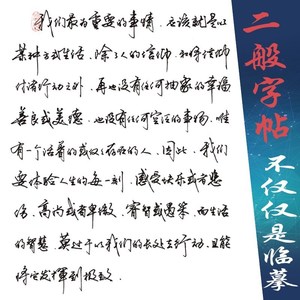 我们最为重要的事情，应该就是以
某种方式生活，除了人的信仰，和将信仰
付诸行动之外，再也没有任何抽象的幸福
善良或美德，也没有任何空洞的事物，唯
有一个活着的或仅存在的人，因此，我们
要体验人生的每一刻，感受快乐或者悲
伤，高尚或者卑微，睿智或愚笨，而生活
的智慧，莫过于以我们的长处去行动，且能
将它发挥到极致。
二般字帖
不仅仅是临摹